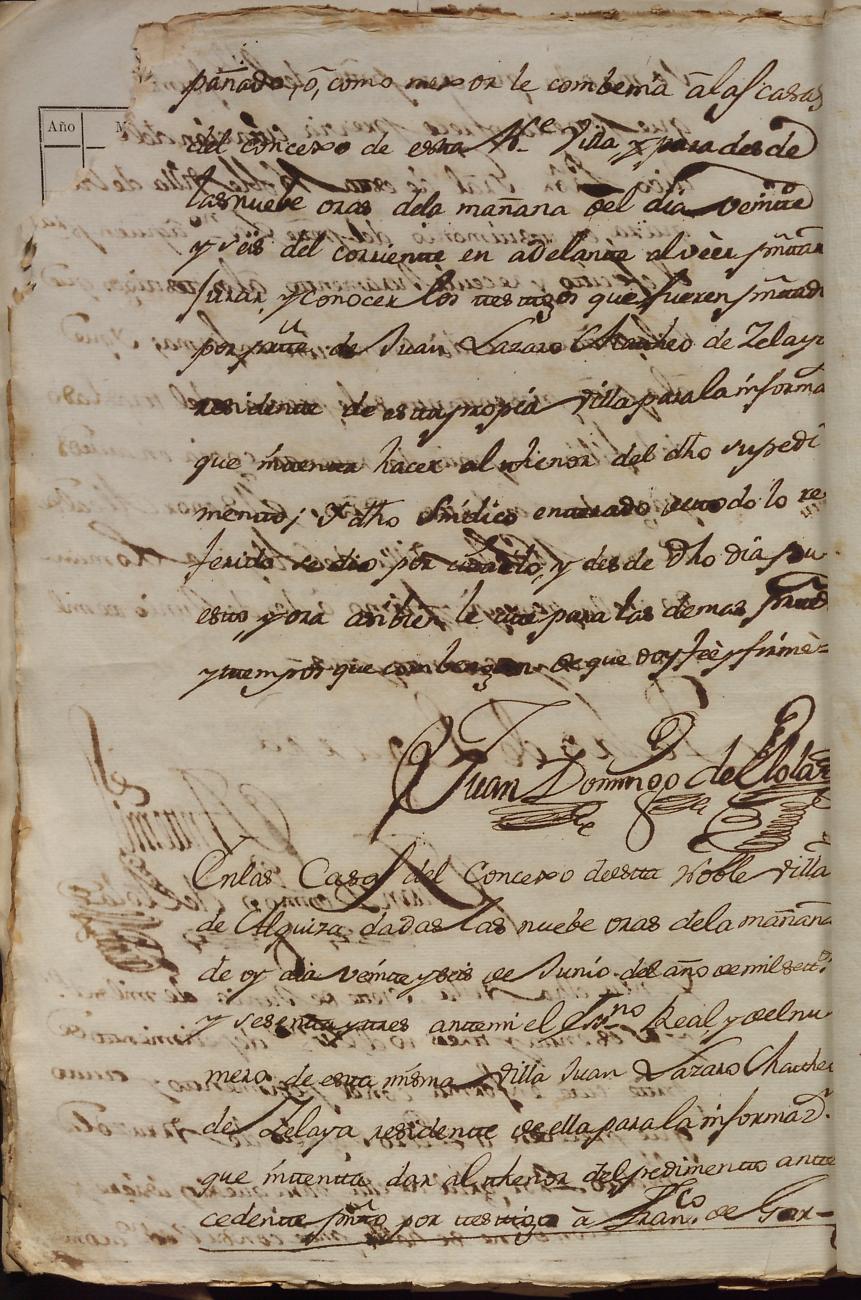 Año M
pañado, ô, como mexor le combenia â las casas
del concexo de esta N.e Villa, y para desde
las nuebe oras dela mañana del dia veinte
y seis del corriente en adelante al veèr pñtar
jurar, y conocer los testigos que fueren pñtad
por parte de Juan Lazaro Matheo de Zelaya
residente de esta propia villa para la informa
que intenta hacer al thenor del dho su pedi
mento; Y dho Sindico enterado de todo lo re
ferido se dio por citado, y desde dho dia pu
esto, y ora arriba le cite para las demas
y tiempos que combengan de que doy feè y firmè=
Juan Domingo de
En las Casas del Concexo de esta Noble Villa
de Alquiza dadas las nuebe oras dela mañana
de oy dia veinte y seis de Junio del año de mil sett.s
y sesenta y tres ante mi el Ess.no Real y del nu
mero de esta misma Villa Juan Lazaro Mathe
de Zelaya residente de ella para la informaz.
que intenta dar al thenor del pedimento ante
cedente pñto por testigo â Fran.co de Gar-